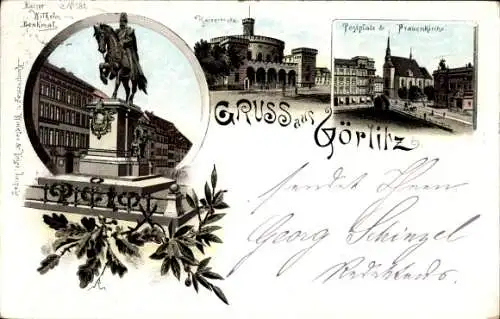 Kaiser
Wilhelm
Denkmal.
Kaisertrutz
Postplatz & Frauenkirche
GRUSS aus Görlitz
sendet Herrn
Georg Schinzel